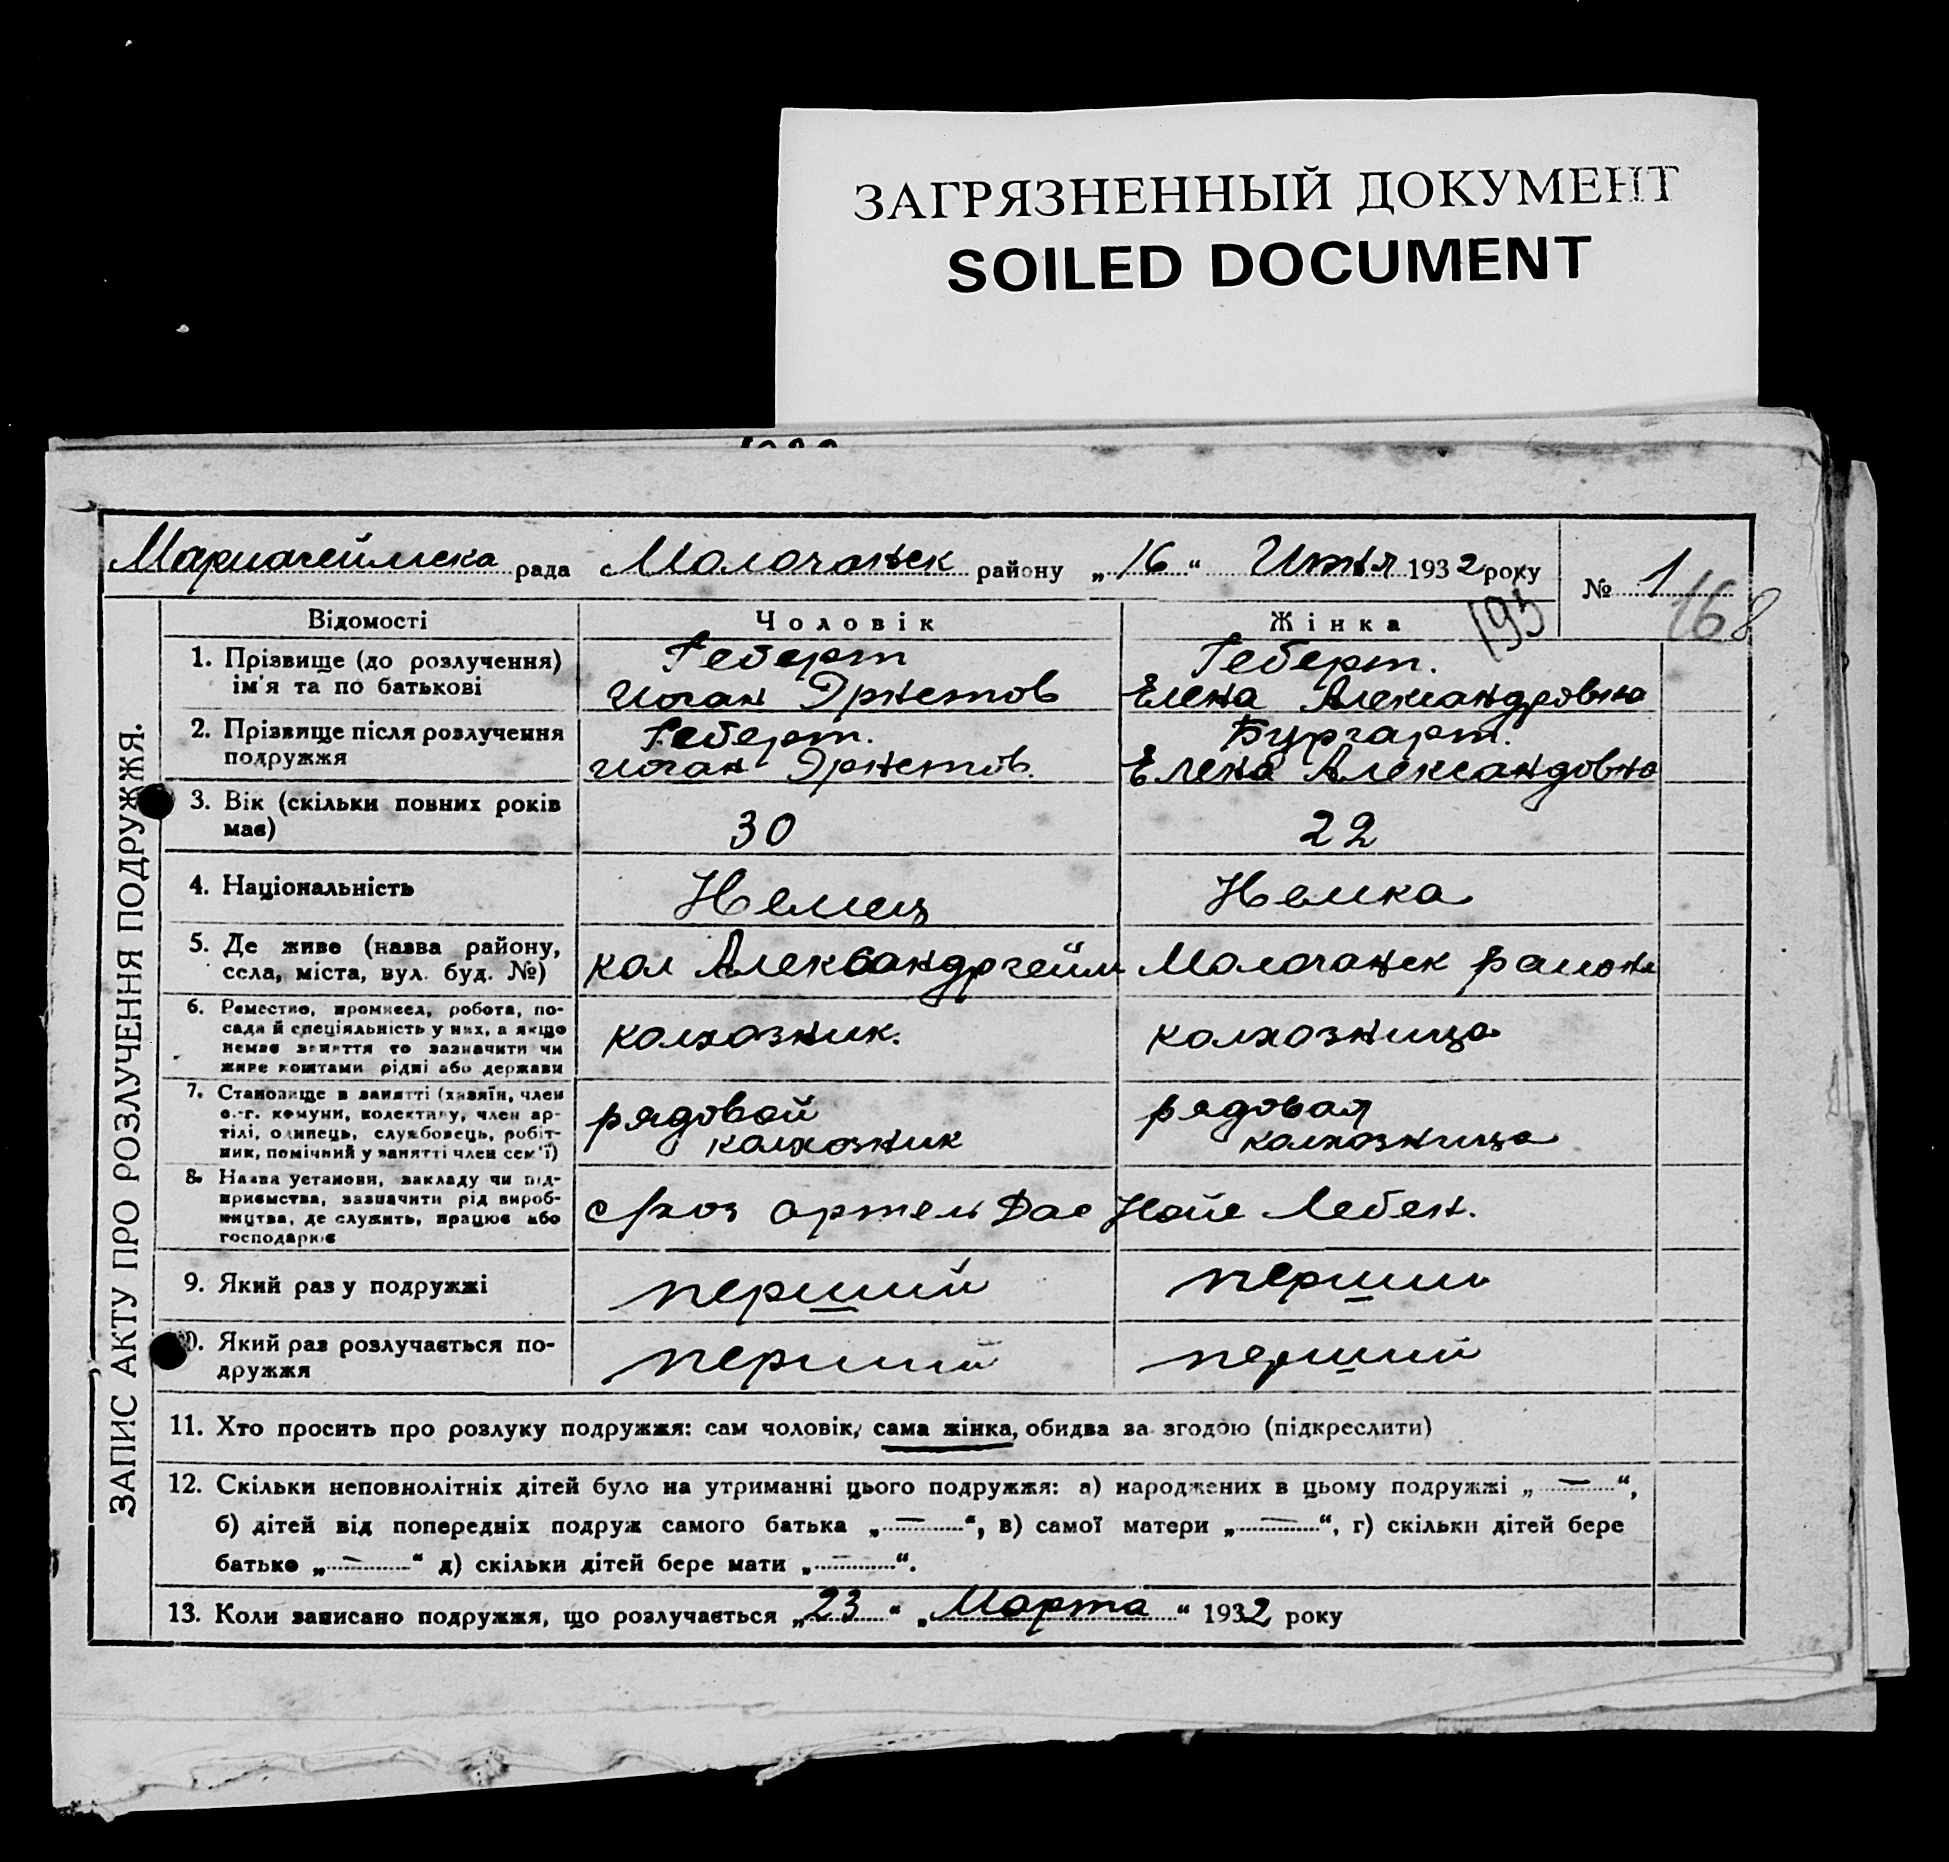 ЗАГРЯЗНЕННЫЙ ДОКУМЕНТ
SOILED DOCUMENT
Мариагеймска рада Молочанск району „16“ 1932 року № 1
193
168
ЗАПИС АКТУ ПРО РОЗЛУЧЕННЯ ПОДРУЖЖЯ.
Відомості Чоловік Жінка
1. Прізвище (до розлучення) ім'я та по батькові
Геберт
Иоган Эрнстов
Геберт.
Елена Александровна
2. Прізвище після розлучення подружжя
Геберт.
Иоган Эрнстов.
Бургарт.
Елена Александовна
3. Вік (скільки повних років має) 30 22
4. Національність Немец Немка
5. Де живе (назва району, села, міста, вул. буд. №) кол Александргейм Молочанск района
6. Ремество, промисел, робота, по-
сада й спеціяльність у них, а якщо
немає заняття то зазначити чи
живе коштами рідні або держави
колхозник. колхозница
7. Становище в занятті (хазяїн, член
с.-г. комуни, колективу, член ар-
тілі, одинець, службовець, робіт-
ник, помічний у занятті член сем'ї)
рядовой
колхозник
рядовая
колхозница
8. Назва установи, закладу чи під-
приємства, зазначити рід вироб-
ництва, де служить, працює або
господарює
с/хоз артель Дас Нойе Лебен.
9. Який раз у подружжі перший перший
10. Який раз розлучається по-
дружжя
перший перший
11. Хто просить про розлуку подружжя: сам чоловік, сама жінка, обидва за згодою (підкреслити)
12. Скільки неповнолітніх дітей було на утриманні цього подружжя: а) народжених в цьому подружжі „—“,
б) дітей від попередніх подруж самого батька „—“, в) самої матери „—“, г) скільки дітей бере
батько „—“ д) скільки дітей бере мати „—“.
13. Коли записано подружжя, що розлучається „23“ „Марта“ 1932 року